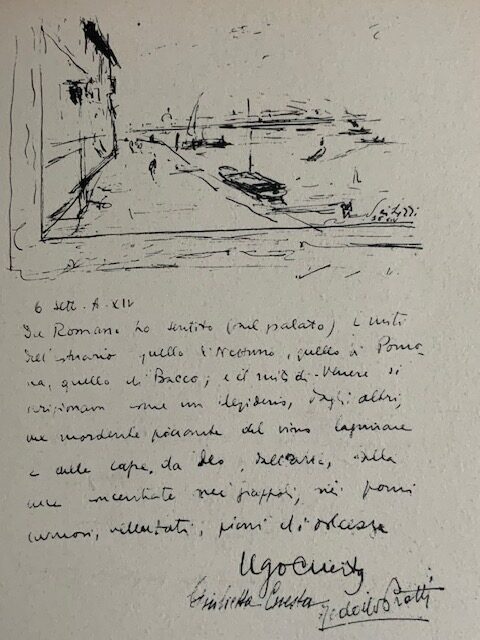 6 Sett. A. XIV
Da Romano ho sentito (nel palato) i miti
dell'estuario quello di Nettuno, quello di Pomo-
na, quello di Bacco; e il mito di Venere si
come un desiderio, dagli altri,
mordente piccante del vino lagunare
e delle cape, da
luce concentrata nei grappoli, nei pomi
carnosi, vellutati, pieni di dolcezze
Ugo Cuesta
Giulietta Cuesta